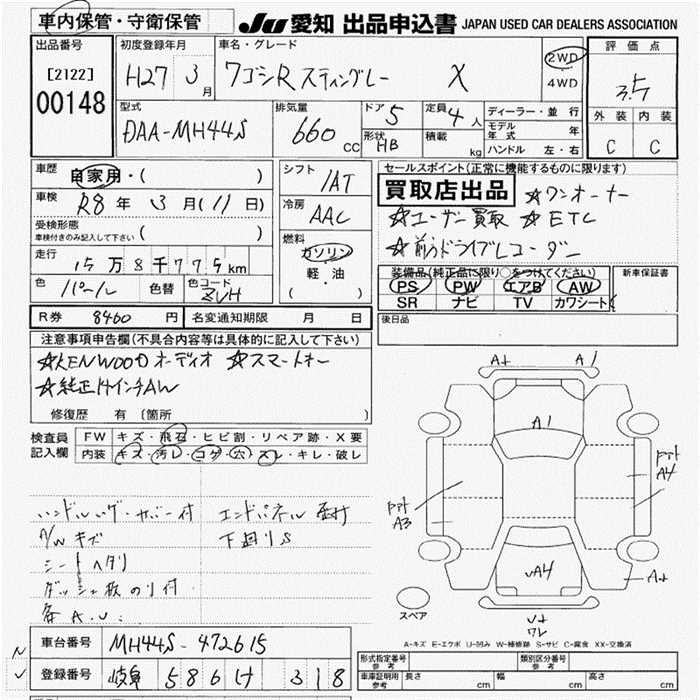 車内保管・守衛保管
JU 愛知 出品申込書 JAPAN USED CAR DEALERS ASSOCIATION
出品番号
[2122]
00148
初度登録年月
H27 3月
車名・グレード
ワゴンR スティングレー X
2WD
4WD
評価点
3.5
外装 内装
C C
型式
DAA-MH44S
排気量
660 CC
ドア 5
形状 HB
定員 4人
積載 kg
ディーラー・並行
モデル年式 年
ハンドル 左・右
車歴 自家用・( )
車検 R8年 3月(11日)
受検形態
車検付きのみ記入して下さい ( )
走行 15万8千775km
色 パール 色替 色コード ZVH
シフト
IAT
冷房
AAC
燃料
ガソリン
軽・油
( )
セールスポイント(正常に機能するものに限ります)
買取店出品 ☆ワンオーナー
☆ユーザー買取 ☆ETC
☆前方ドライブレコーダー
装備品(純正品に限り○をつけてください) 新車保証書
PS PW エアB AW
SR ナビ TV カワシート
R券 8460円 名変通知期限 月 日
後日品
注意事項申告欄(不具合内容等は具体的に記入して下さい)
☆KENWOODオーディオ ☆スマートキー
☆純正14インチAW
修復歴 有 〔箇所 〕
検査員記入欄
FW キズ・飛石・ヒビ割・リペア跡・X要
内装 キズ・汚レ・コゲ・穴・スレ・キレ・破レ
A/W キズ 下廻りS
シートヘタリ
A+ A1
A1
A4
A3
A4
A+
スペア
A-キズ E-エクボ U-凹み W-補修跡 S-サビ C-腐食 XX-交換済
車台番号 MH44S-472615
登録番号 岐阜 586 け 318
形式指定番号 参考
類別区分番号 参考
車庫証明用 参考 長さ cm 幅 cm 高さ cm